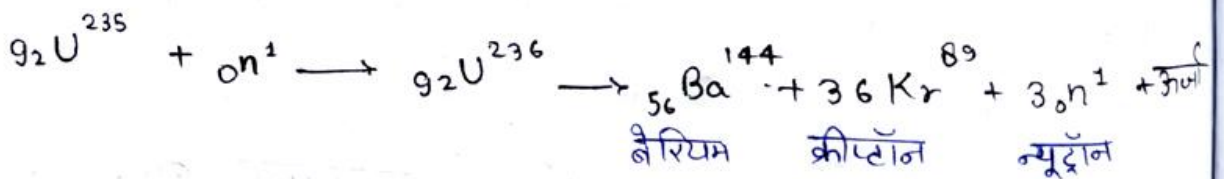 ₉₂U²³⁵ + ₀n¹ ⟶ ₉₂U²³⁶ ⟶ ₅₆Ba¹⁴⁴ + ₃₆Kr⁸⁹ + 3₀n¹ + ऊर्जा
बेरियम क्रीप्टॉन न्यूट्रॉन